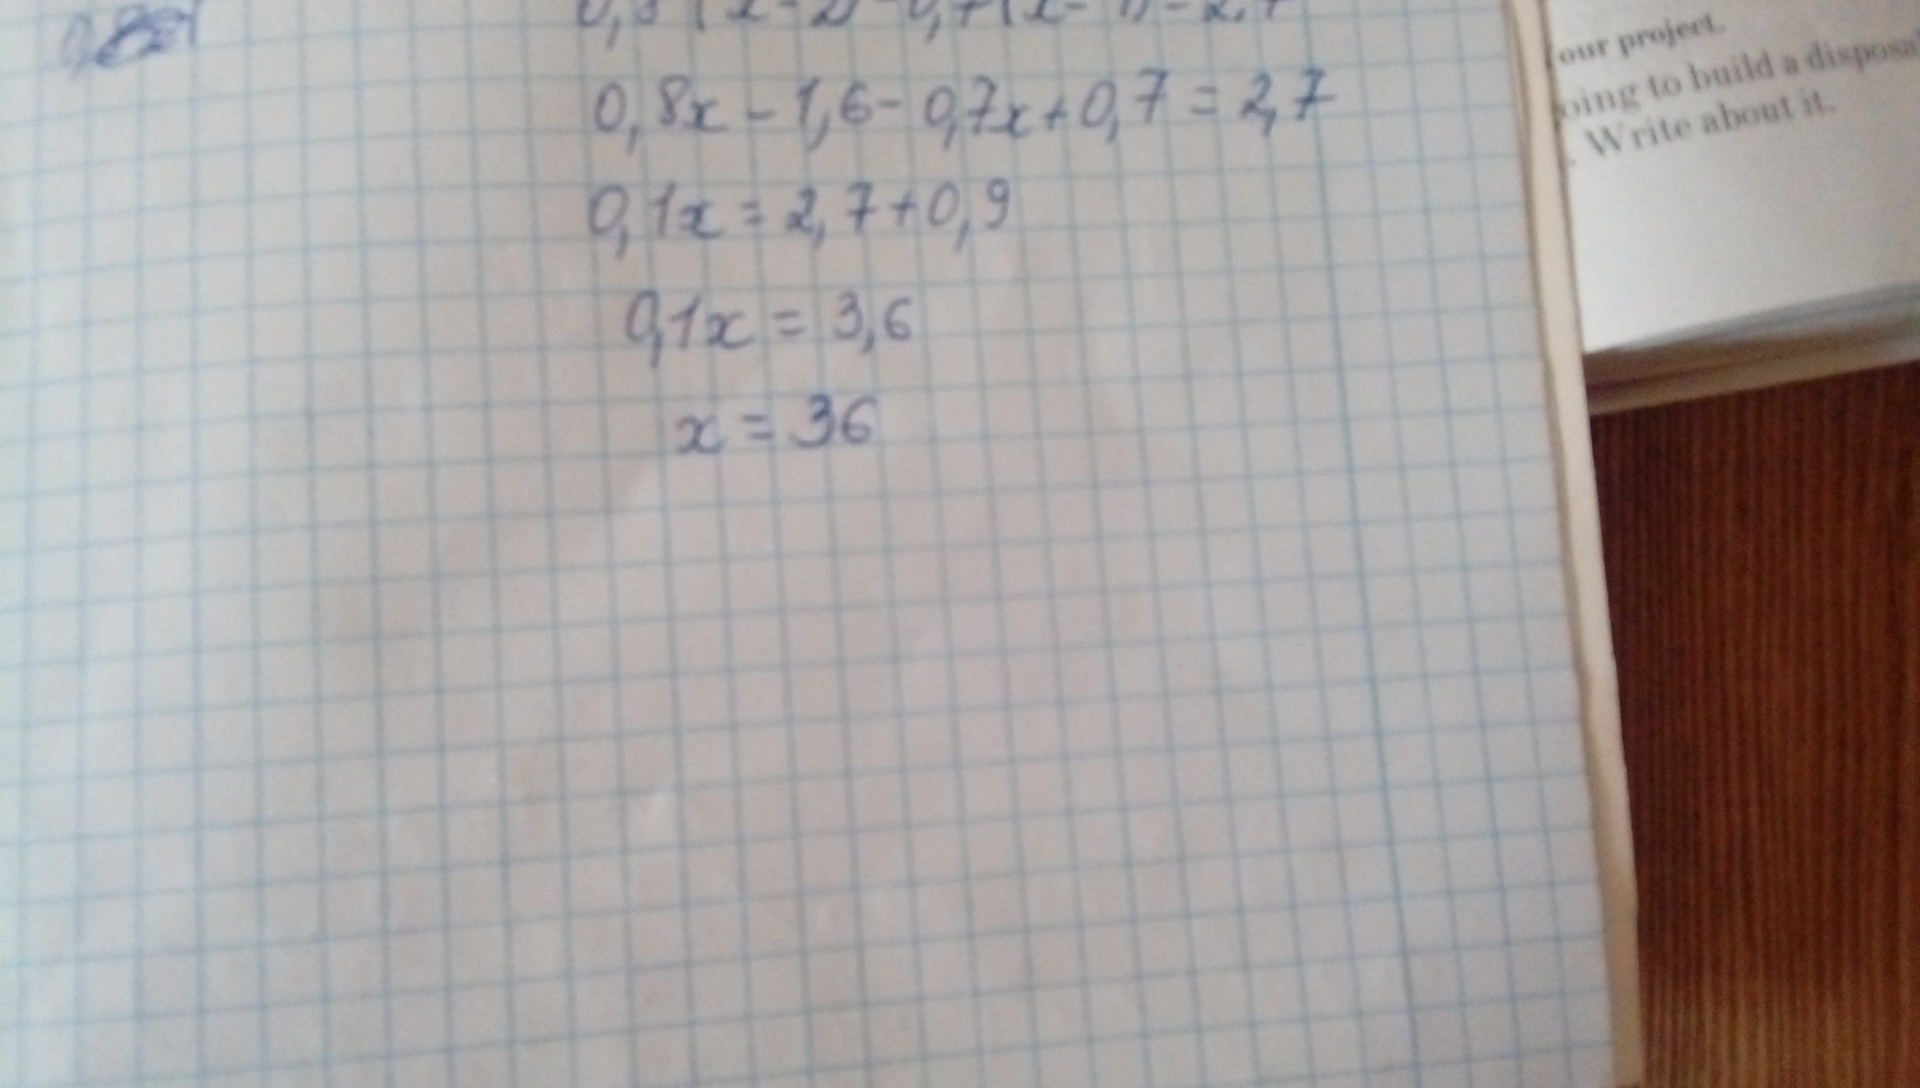 0,8(x-2)-0,7(x-1)=2,7
0,8x-1,6-0,7x+0,7=2,7
0,1x=2,7+0,9
0,1x=3,6
x=36
our project.
oing to build a disposal
. Write about it.